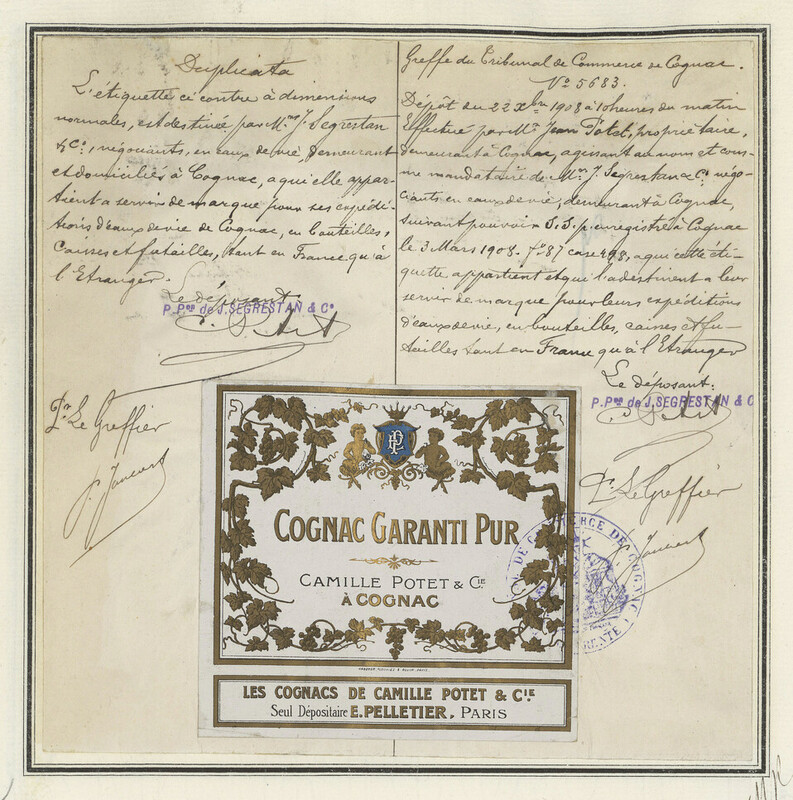 Duplicata
L'étiquette ci contre à dimensions
normales, est destinée par Mrs J. Segrestan
& Cie, négociants, en eaux de vie, demeurant
et domiciliés à Cognac, a qui elle appar-
tient a servir de marque pour ses expédi-
tions d'eaux de vie de Cognac, en bouteilles,
Caisses et futailles, tant en France qu'à
l'Etranger.
Le déposant
P. Pon de J. SEGRESTAN & Co
J. Potet
Pr Le Greffier
Greffe du Tribunal de Commerce de Cognac.
No 5683.
Dépôt du 22 Xbre 1908 à 10 heures du matin
Effectué par Mr Jean Potet, propriétaire,
demeurant à Cognac, agissant au nom et com-
me mandataire de Mrs J. Segrestan & Cie négo-
ciants en eaux de vie, demeurant à Cognac,
suivant pouvoir S.S.p. enregistré à Cognac
le 3 Mars 1908. fo 87 case 498, a qui cette éti-
quette appartient et qui l'a destinent a leur
servir de marque pour leurs expéditions
d'eaux de vie, en bouteilles, caisses et fu-
tailles tant en France qu'à l'Etranger
Le déposant:
P. Pon de J. SEGRESTAN & C
J. Potet
Pr Le Greffier
COGNAC GARANTI PUR
CAMILLE POTET & CIE
À COGNAC
LES COGNACS DE CAMILLE POTET & CIE
Seul Dépositaire E. PELLETIER, PARIS
DE COMMERCE DE COGNAC